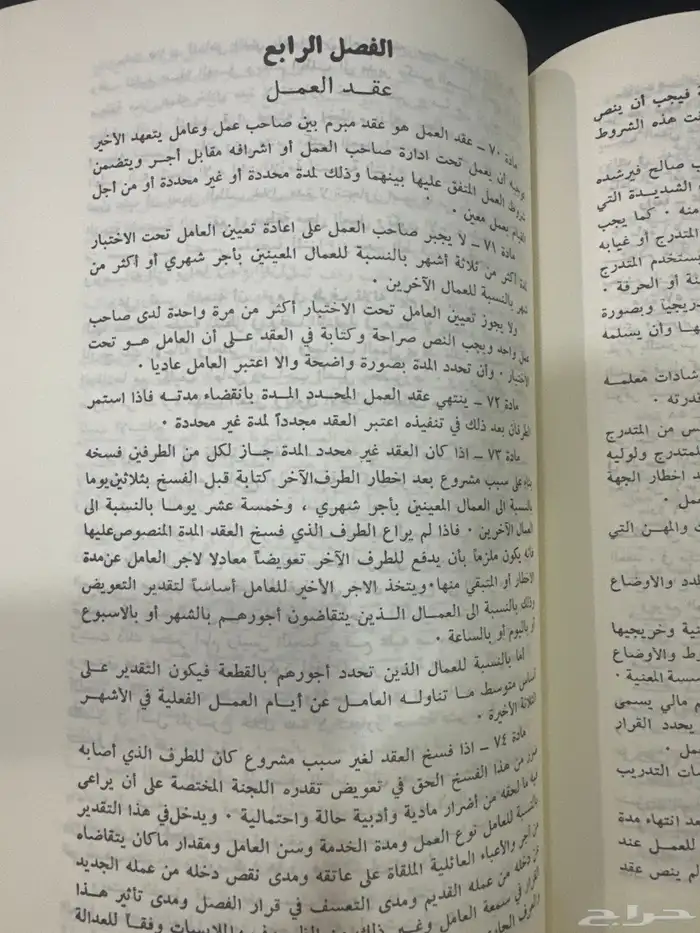 الفصل الرابع
عقد العمل
مادة ٧٠ – عقد العمل هو عقد مبرم بين صاحب عمل وعامل يتعهد الأخير
بموجبه أن يعمل تحت ادارة صاحب العمل أو اشرافه مقابل أجر ويتضمن
شروط العمل المتفق عليها بينهما وذلك لمدة محددة أو غير محددة أو من أجل
القيام بعمل معين .
مادة ٧١ – لا يجبر صاحب العمل على اعادة تعيين العامل تحت الاختبار
لمدة أكثر من ثلاثة أشهر بالنسبة للعمال المعينين بأجر شهري أو أكثر من
شهر بالنسبة للعمال الآخرين .
ولا يجوز تعيين العامل تحت الاختبار أكثر من مرة واحدة لدى صاحب
عمل واحد ويجب النص صراحة وكتابة في العقد على أن العامل هو تحت
الاختبار . وأن تحدد المدة بصورة واضحة والا اعتبر العامل عاديا .
مادة ٧٢ – ينتهي عقد العمل المحدد المدة بانقضاء مدته فاذا استمر
الطرفان بعد ذلك في تنفيذه اعتبر العقد مجدداً لمدة غير محددة .
مادة ٧٣ – اذا كان العقد غير محدد المدة جاز لكل من الطرفين فسخه
بناء على سبب مشروع بعد اخطار الطرف الآخر كتابة قبل الفسخ بثلاثين يوما
بالنسبة الى العمال المعينين بأجر شهري ، وخمسة عشر يوما بالنسبة الى
العمال الآخرين . فاذا لم يراع الطرف الذي فسخ العقد المدة المنصوص عليها
فانه يكون ملزماً بأن يدفع للطرف الآخر تعويضاً معادلا لاجر العامل عن مدة
الاخطار أو المتبقي منها . ويتخذ الاجر الأخير للعامل أساساً لتقدير التعويض
وذلك بالنسبة الى العمال الذين يتقاضون أجورهم بالشهر أو بالاسبوع
أو باليوم أو بالساعة .
اما بالنسبة للعمال الذين تحدد أجورهم بالقطعة فيكون التقدير على
أساس متوسط ما تناوله العامل عن أيام العمل الفعلية في الأشهر
الثلاثة الأخيرة .
مادة ٧٤ – اذا فسخ العقد لغير سبب مشروع كان للطرف الذي أصابه
ضرر من هذا الفسخ الحق في تعويض تقدره اللجنة المختصة على أن يراعى
فيه ما لحقه من أضرار مادية وأدبية حالة واحتمالية . ويدخل في هذا التقدير
بالنسبة للعامل نوع العمل ومدة الخدمة وسن العامل ومقدار ماكان يتقاضاه
من أجر والأعباء العائلية الملقاة على عاتقه ومدى نقص دخله من عمله الجديد
عن دخله من عمله القديم ومدى التعسف في قرار الفصل ومدى تأثير هذا
القرار في سمعة العامل وغير ذلك من الظروف والملابسات وفقاً للعدالة
والعرف
ة فيجب أن ينص
هذه الشروط
صالح فيرشده
الشديدة التي
منه . كما يجب
المتدرج أو غيابه
يستخدم المتدرج
أو الحرفة .
وبصورة
وأن يسلمه
شادات معلمه
قدرته .
من المتدرج
للمتدرج ولوليه
اخطار الجهة
عمل .
والمهن التي
والاوضاع
وخريجيها
والاوضاع
المعنية .
مالي يسمى
يحدد القرار
عمل .
التدريب
انتهاء مدة
للعمل عند
لم ينص عقد
حراج